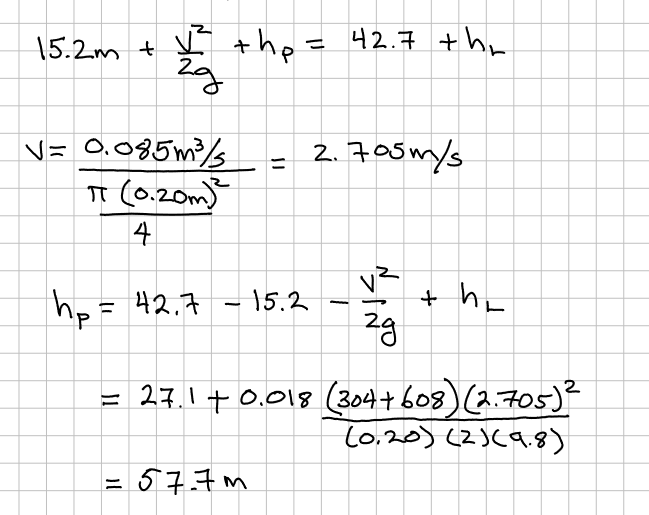 15.2m + V²/2g + hₚ = 42.7 + h_L
V = 0.085m³/s / (π(0.20m)²/4) = 2.705m/s
hₚ = 42.7 - 15.2 - V²/2g + h_L
= 27.1 + 0.018 (304+608)(2.705)²/(0.20)(2)(9.8)
= 57.7m